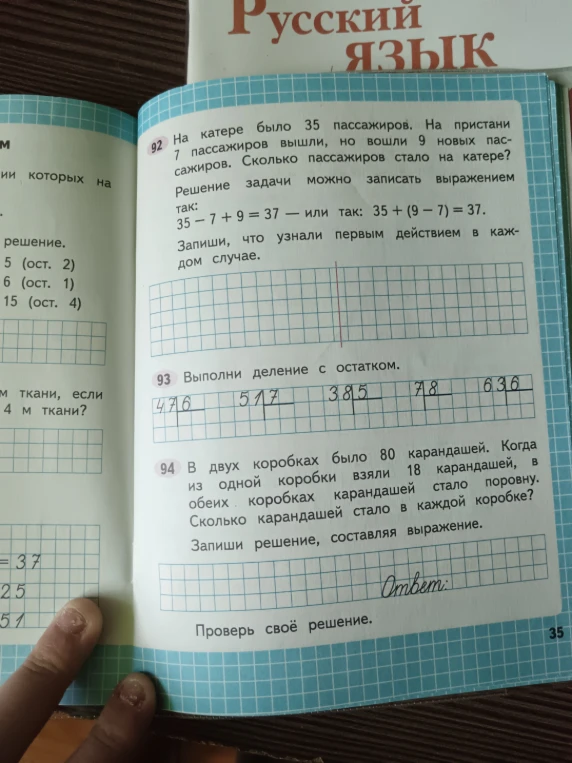 Русский
ЯЗЫК
м
ии которых на
решение.
5 (ост. 2)
6 (ост. 1)
15 (ост. 4)
м ткани, если
4 м ткани?
= 37
25
51
92 На катере было 35 пассажиров. На пристани
7 пассажиров вышли, но вошли 9 новых пас-
сажиров. Сколько пассажиров стало на катере?
Решение задачи можно записать выражением
так:
35 − 7 + 9 = 37 — или так: 35 + (9 − 7) = 37.
Запиши, что узнали первым действием в каж-
дом случае.
93 Выполни деление с остатком.
47 6 51 7 38 5 7 8 63 6
94 В двух коробках было 80 карандашей. Когда
из одной коробки взяли 18 карандашей, в
обеих коробках карандашей стало поровну.
Сколько карандашей стало в каждой коробке?
Запиши решение, составляя выражение.
Ответ:
Проверь своё решение.
35